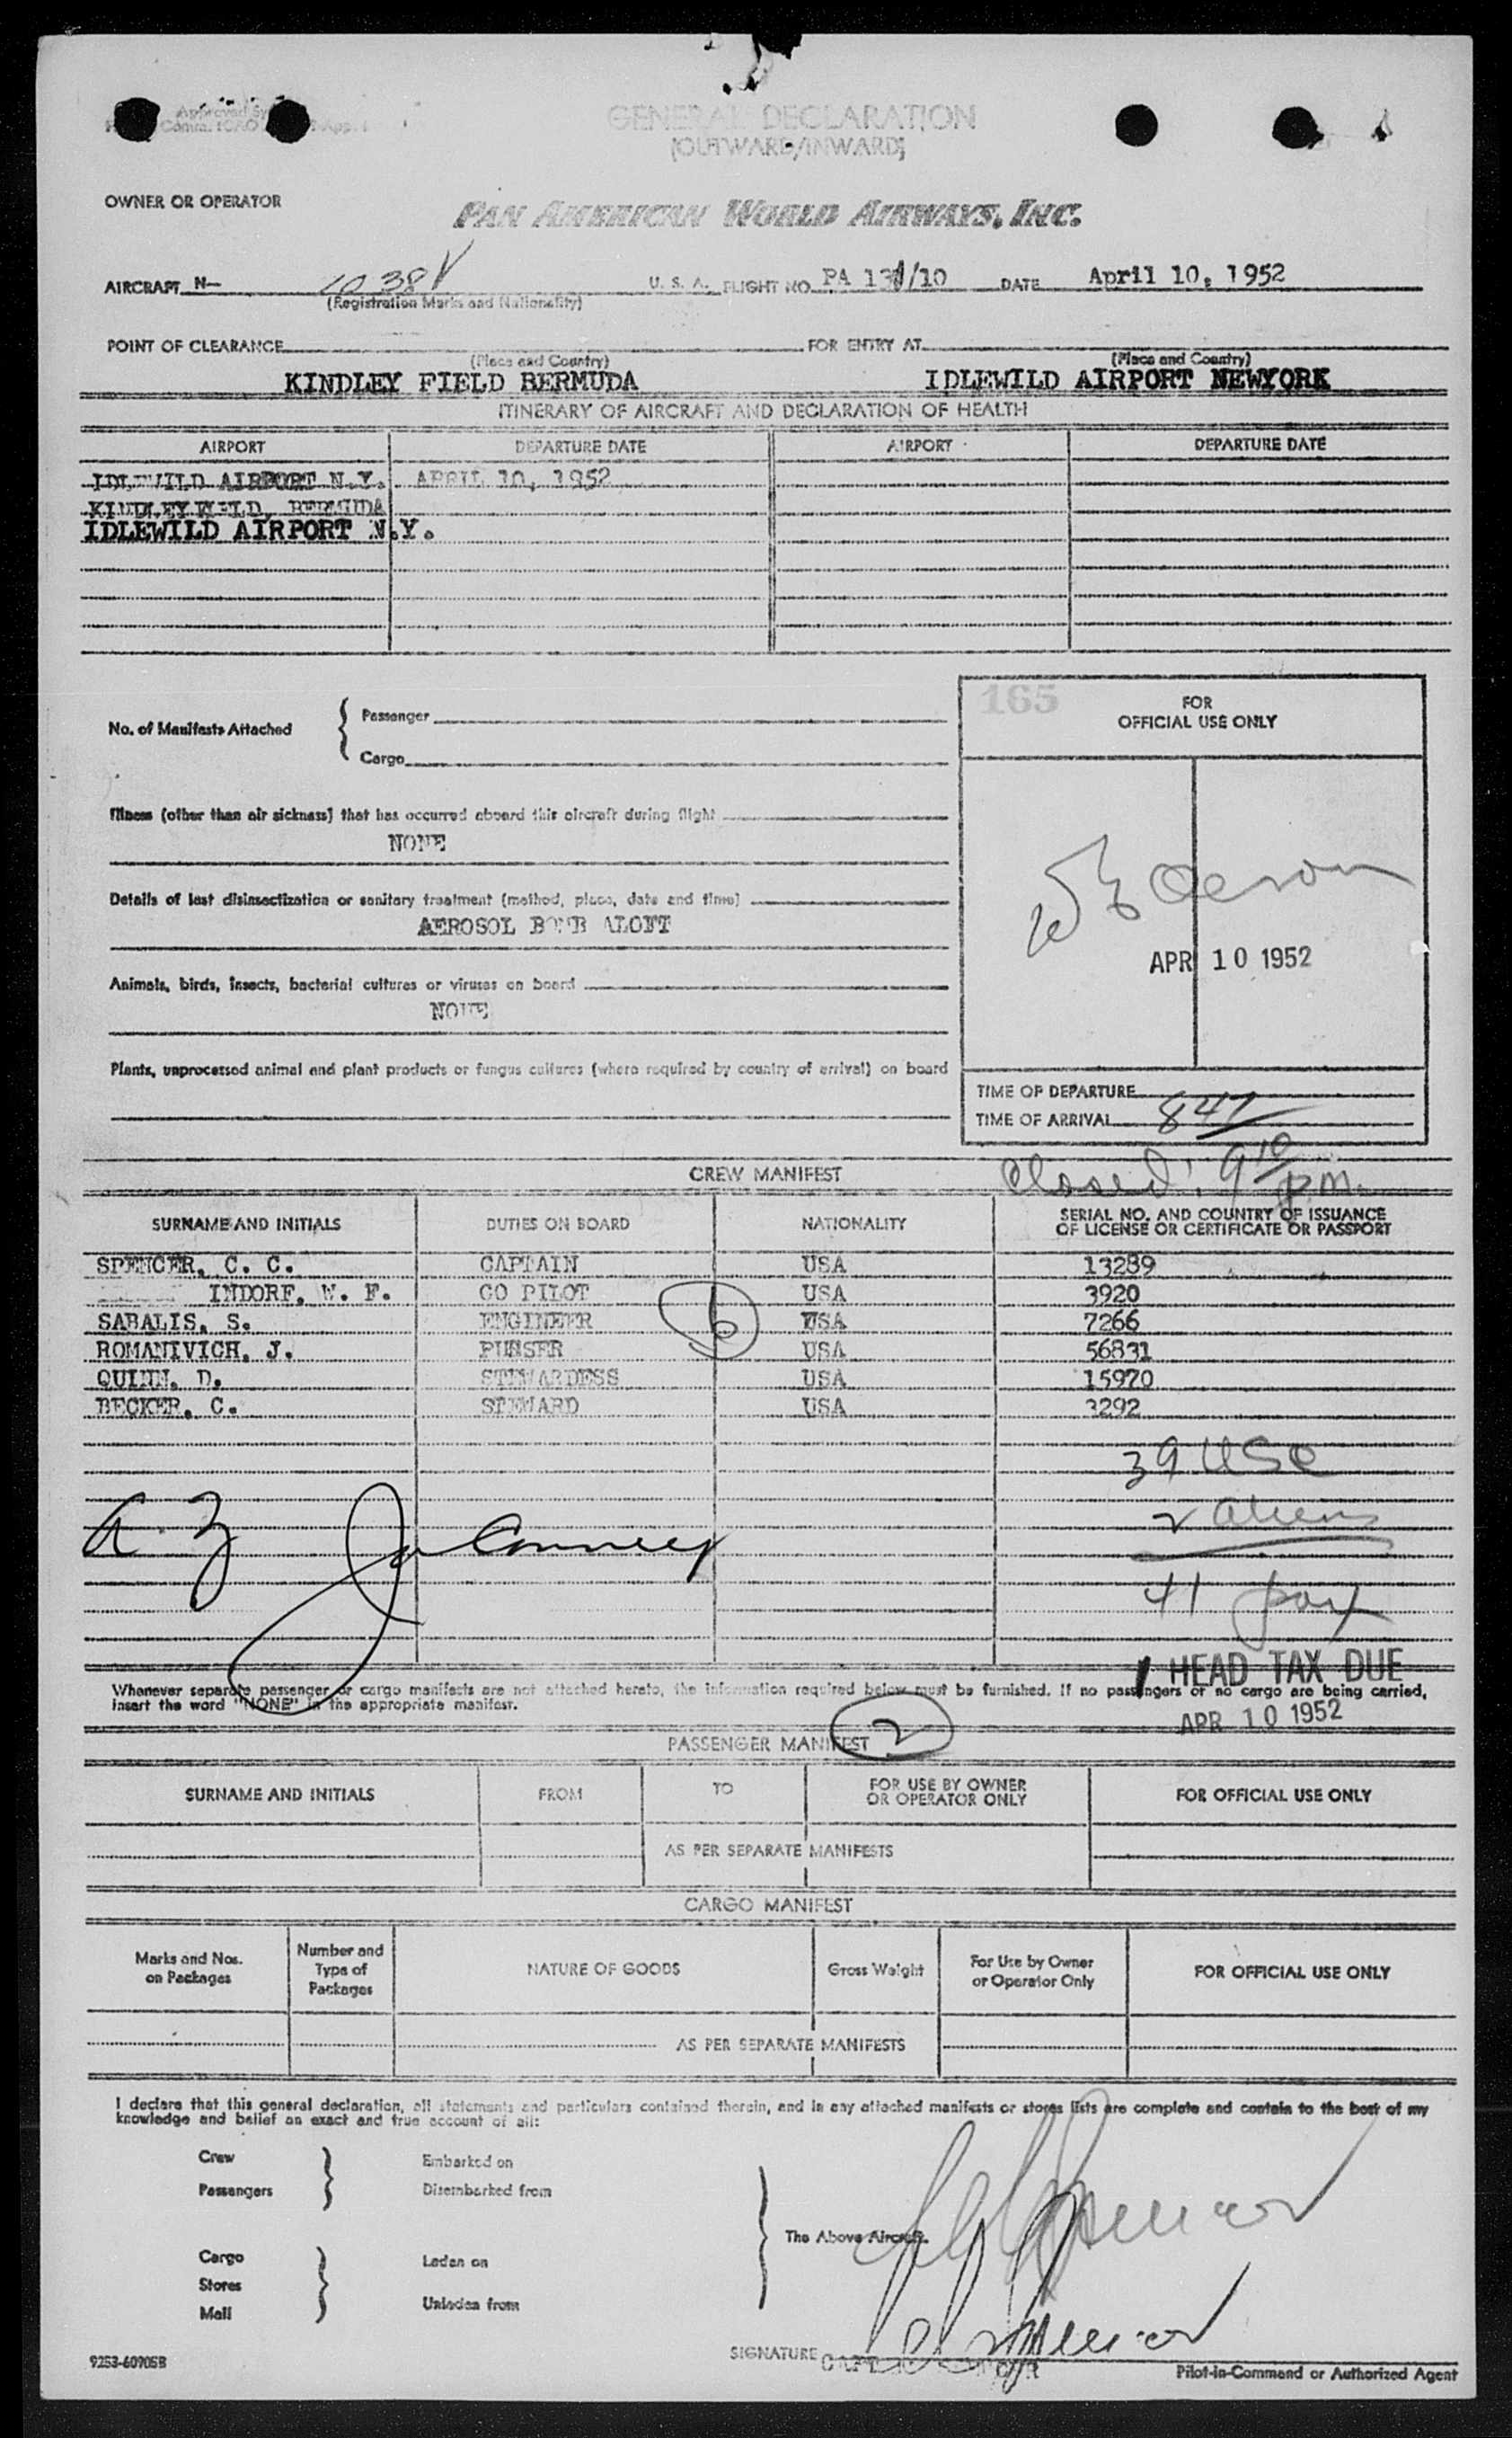 Approved by
Comm. ICAO
GENERAL DECLARATION
(OUTWARD/INWARD)
OWNER OR OPERATOR
PAN AMERICAN WORLD AIRWAYS, INC.
AIRCRAFT N— 1038V U. S. A. FLIGHT NO. PA 131/10 DATE April 10, 1952
(Registration Marks and Nationality)
POINT OF CLEARANCE FOR ENTRY AT
(Place and Country) (Place and Country)
KINDLEY FIELD BERMUDA IDLEWILD AIRPORT NEWYORK
ITINERARY OF AIRCRAFT AND DECLARATION OF HEALTH
AIRPORT DEPARTURE DATE AIRPORT DEPARTURE DATE
IDLEWILD AIRPORT N.Y. APRIL 10, 1952
KINDLEY FIELD, BERMUDA
IDLEWILD AIRPORT N.Y.
165
FOR
OFFICIAL USE ONLY
No. of Manifests Attached { Passenger
Cargo
Illness (other than air sickness) that has occurred aboard this aircraft during flight
NONE
Details of last disinsectization or sanitary treatment (method, place, date and time)
AEROSOL BOMB ALOFT
APR 10 1952
Animals, birds, insects, bacterial cultures or viruses on board
NONE
Plants, unprocessed animal and plant products or fungus cultures (where required by country of arrival) on board
TIME OF DEPARTURE
TIME OF ARRIVAL 847
Closed: 9 10 p.m.
CREW MANIFEST
SURNAME AND INITIALS DUTIES ON BOARD NATIONALITY SERIAL NO. AND COUNTRY OF ISSUANCE
OF LICENSE OR CERTIFICATE OR PASSPORT
SPENCER, C. C. CAPTAIN USA 13289
INDORF, W. F. CO PILOT USA 3920
SABALIS, S. ENGINEER USA 7266
6
ROMANIVICH, J. PURSER USA 56831
QUINN, D. STEWARDESS USA 15970
BECKER, C. STEWARD USA 3292
39 USC
2 aliens
41 pax
1 HEAD TAX DUE
APR 10 1952
Whenever separate passenger or cargo manifests are not attached hereto, the information required below must be furnished. If no passengers or no cargo are being carried,
insert the word "NONE" in the appropriate manifest.
2
PASSENGER MANIFEST
SURNAME AND INITIALS FROM TO FOR USE BY OWNER
OR OPERATOR ONLY FOR OFFICIAL USE ONLY
AS PER SEPARATE MANIFESTS
CARGO MANIFEST
Marks and Nos.
on Packages Number and
Type of
Packages NATURE OF GOODS Gross Weight For Use by Owner
or Operator Only FOR OFFICIAL USE ONLY
AS PER SEPARATE MANIFESTS
I declare that this general declaration, all statements and particulars contained therein, and in any attached manifests or stores lists are complete and contain to the best of my
knowledge and belief an exact and true account of all:
Crew Embarked on
Passengers Disembarked from
The Above Aircraft.
Cargo Laden on
Stores
Mail Unladen from
SIGNATURE CAPT
9253-60905B
Pilot-in-Command or Authorized Agent